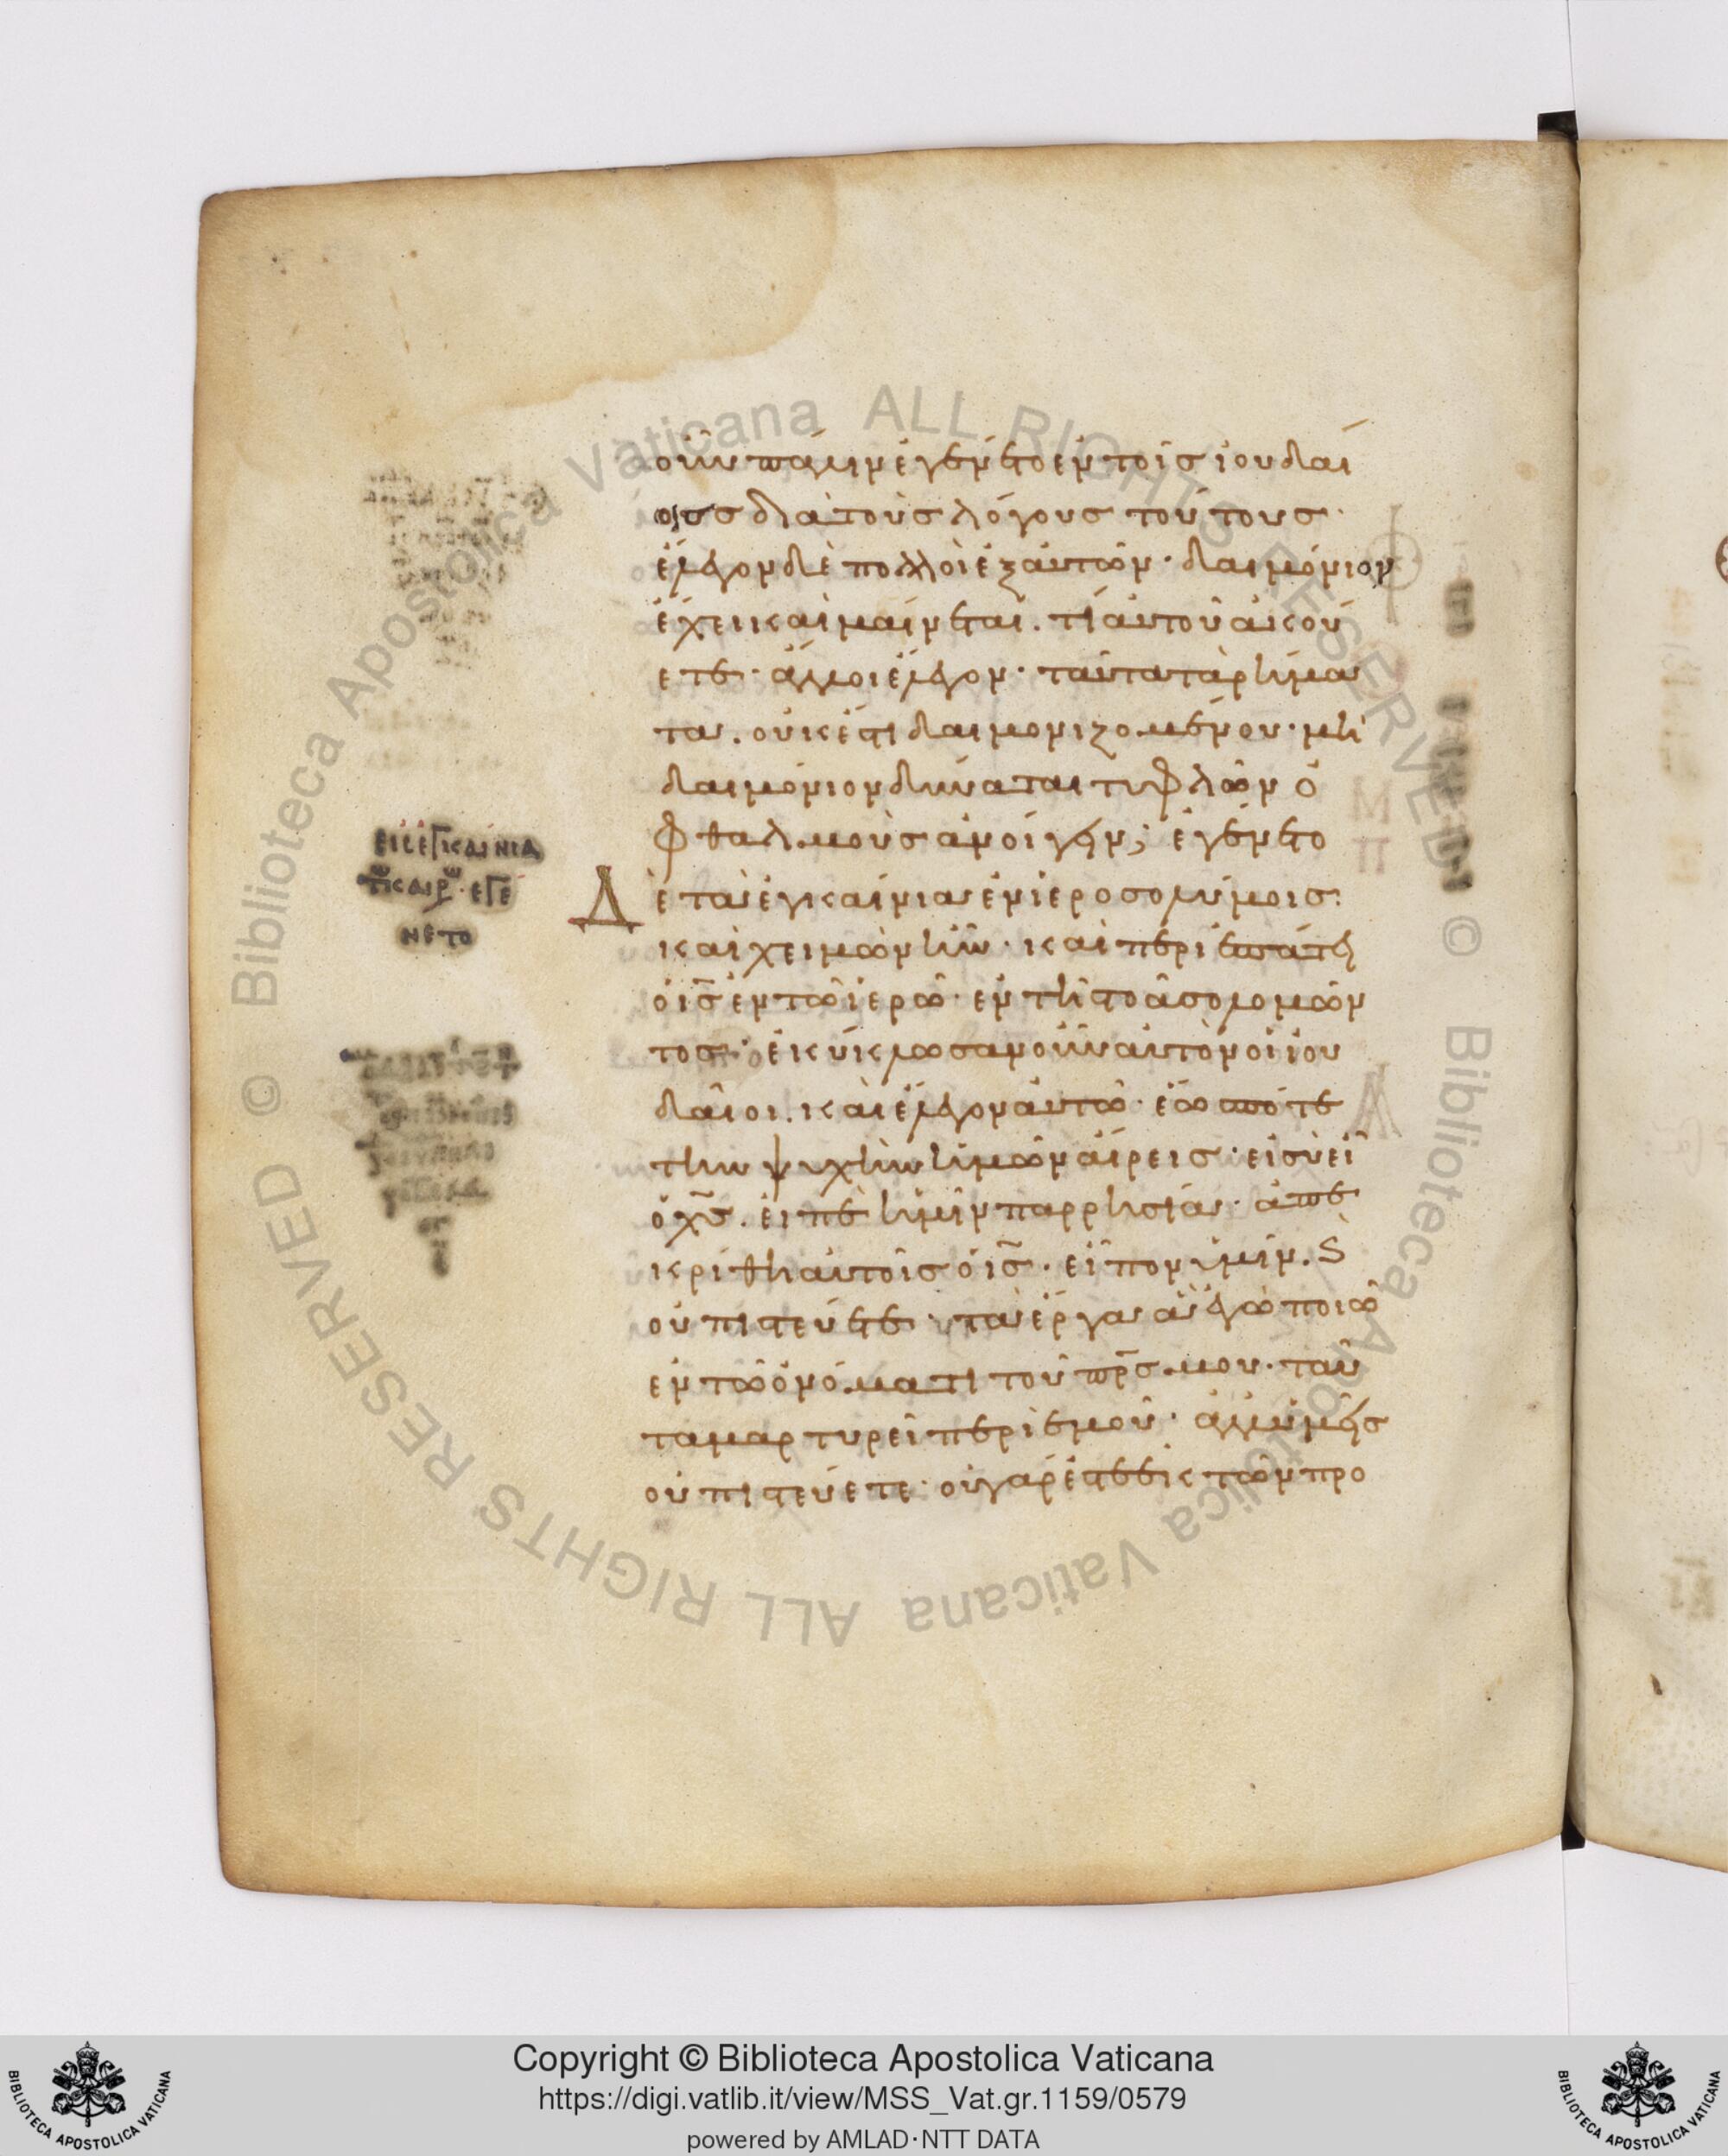 οὖν πάλιν ἐγένετο ἐν τοῖς ἰουδαί
οις διὰ τοὺς λόγους τούτους·
ἔλεγον δὲ πολλοὶ ἐξ αὐτῶν· δαιμόνιον
ἔχει καὶ μαίνεται. τί αὐτοῦ ἀκού
ετε· ἄλλοι ἔλεγον· ταῦτα τὰ ῥήμα
τα. οὐκ ἔστι δαιμονιζομένου· μὴ
δαιμόνιον δύναται τυφλῶν ὀ
φθαλμοὺς ἀνοίγειν; ἐγένετο
Δ
ὲ τὰ ἐγκαίνια ἐν ἱεροσολύμοις·
καὶ χειμὼν ἦν· καὶ περιεπάτει
ὁ ις̅ ἐν τῷ ἱερῷ· ἐν τῇ στοᾷ σολομῶν
τος· ἐκύκλωσαν οὖν αὐτὸν οἱ ἰου
δαῖοι. καὶ ἔλεγον αὐτῷ· ἕως πότε
τὴν ψυχὴν ἡμῶν αἴρεις· εἰ σὺ εἶ
ὁ χς̅. εἰπὲ ἡμῖν παρρησίᾳ· ἀπε
κρίθη αὐτοῖς ὁ ις̅· εἶπον ὑμῖν. ϗ
οὐ πιστεύετε· τὰ ἔργα ἃ ἐγὼ ποιῶ
ἐν τῷ ὀνόματι τοῦ πρ̅ς μου· ταῦ
τα μαρτυρεῖ περὶ ἐμοῦ· ἀλλ' ὑμεῖς
οὐ πιστεύετε· οὐ γάρ ἐστε ἐκ τῶν προ
ΕΙΣ ΕΓΚΑΙΝΙΑ
ΤΩ ΚΑΙΡΩ· ΕΓΕ
ΝΕΤΟ
Copyright © Biblioteca Apostolica Vaticana
https://digi.vatlib.it/view/MSS_Vat.gr.1159/0579
powered by AMLAD·NTT DATA
BIBLIOTECA APOSTOLICA VATICANA
BIBLIOTECA APOSTOLICA VATICANA
© Biblioteca Apostolica Vaticana ALL RIGHTS RESERVED
© Biblioteca Apostolica Vaticana ALL RIGHTS RESERVED